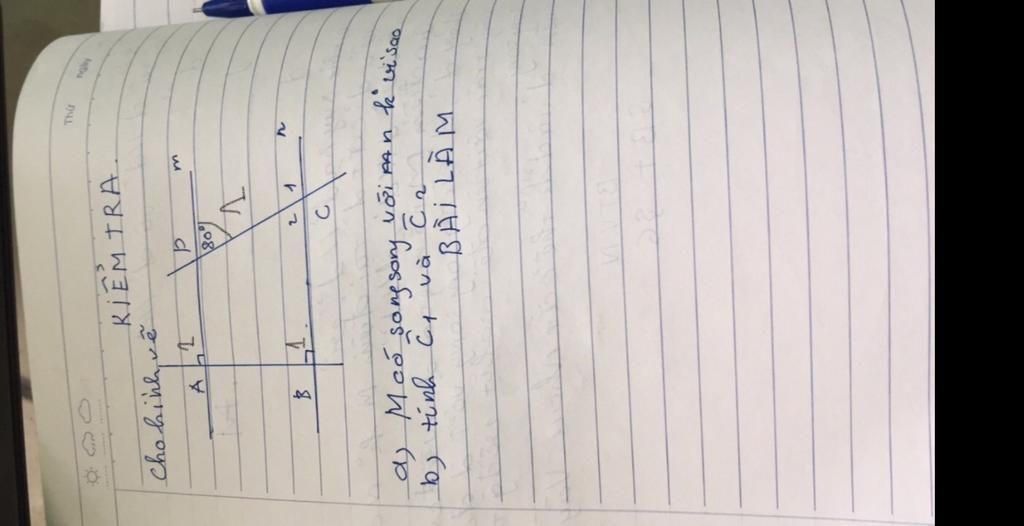 Thứ
ngày
KIỂM TRA
Cho hình vẽ
A 1 D m
80° 1
B 1 2 1 n
C
a) M có song song với n k vì sao
b) tính C1 và C2
BÀI LÀM